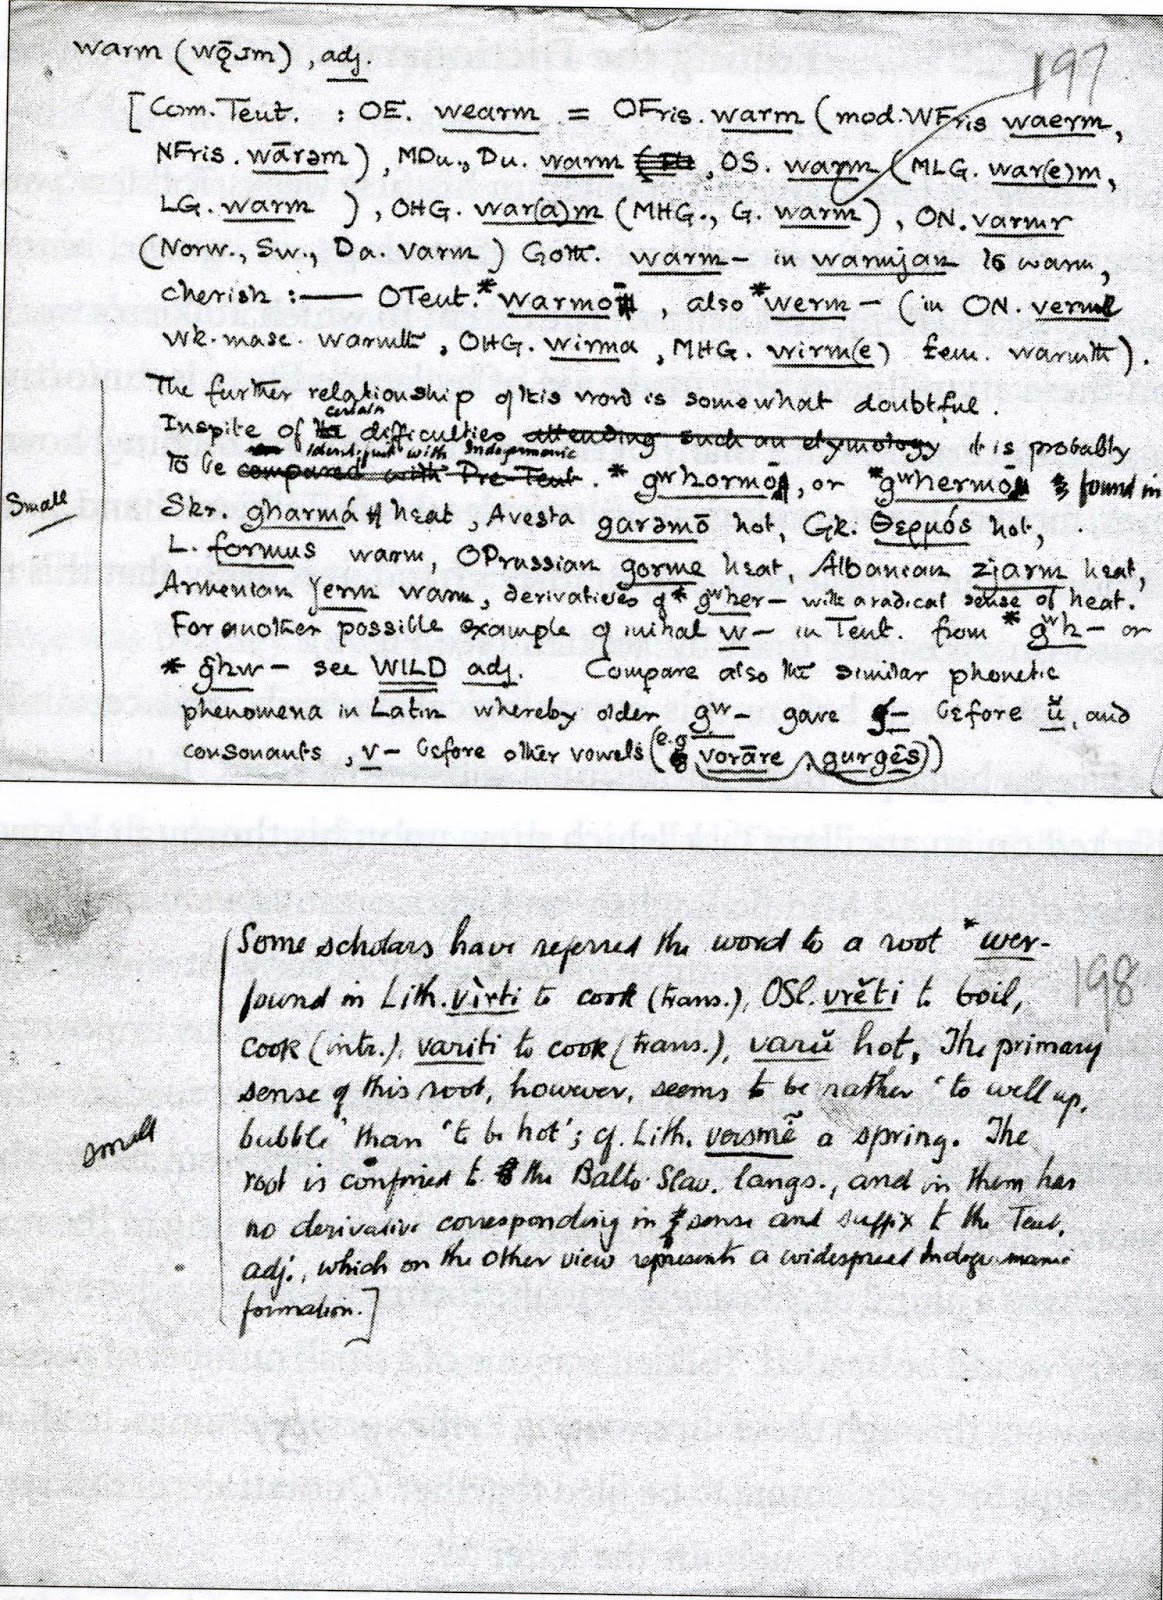 warm (wǭɹm), adj.
197
[Com. Teut. : OE. wearm = OFris. warm (mod. WFris waerm,
NFris. wārəm), MDu., Du. warm, OS. warm (MLG. war(e)m,
LG. warm ), OHG. war(a)m (MHG., G. warm), ON. varmr
(Norw., Sw., Da. varm) Goth. warm- in warmjan to warm,
cherish :— OTeut. *warmo, also *werm- (in ON. verme
wk. masc. warmth, OHG. wirma, MHG. wirm(e) fem. warmth).
The further relationship of this word is somewhat doubtful.
certain
Inspite of difficulties attending such an etymology it is probably
identified with Indogermanic
to be compared with Pre-Teut. *gʷhormō, or *gʷhermō found in
Small
Skr. gharmá heat, Avesta garəmō hot, Gk. θερμός hot,
L. formus warm, OPrussian gorme heat, Albanian zjarm heat,
Armenian ǰerm warm, derivatives of *gʷher- with a radical sense of heat.
For another possible example of initial w- in Teut. from *gʷh- or
*ĝhw- see WILD adj. Compare also the similar phonetic
phenomena in Latin whereby older gʷ- gave g- before ŭ, and
consonants, v- before other vowels (e.g vorāre, gurges))
Some scholars have referred the word to a root *wer-
198
found in Lith. vìrti to cook (trans.), OSl. vrěti to boil,
cook (intr.), variti to cook (trans.), varŭ hot, The primary
sense of this root, however, seems to be rather 'to well up,
small
bubble' than 'to be hot'; cf. Lith. versmẽ a spring. The
root is confined to the Balto-Slav. langs., and in them has
no derivative corresponding in sense and suffix to the Teut.
adj., which on the other view represents a widespread Indogermanic
formation.]